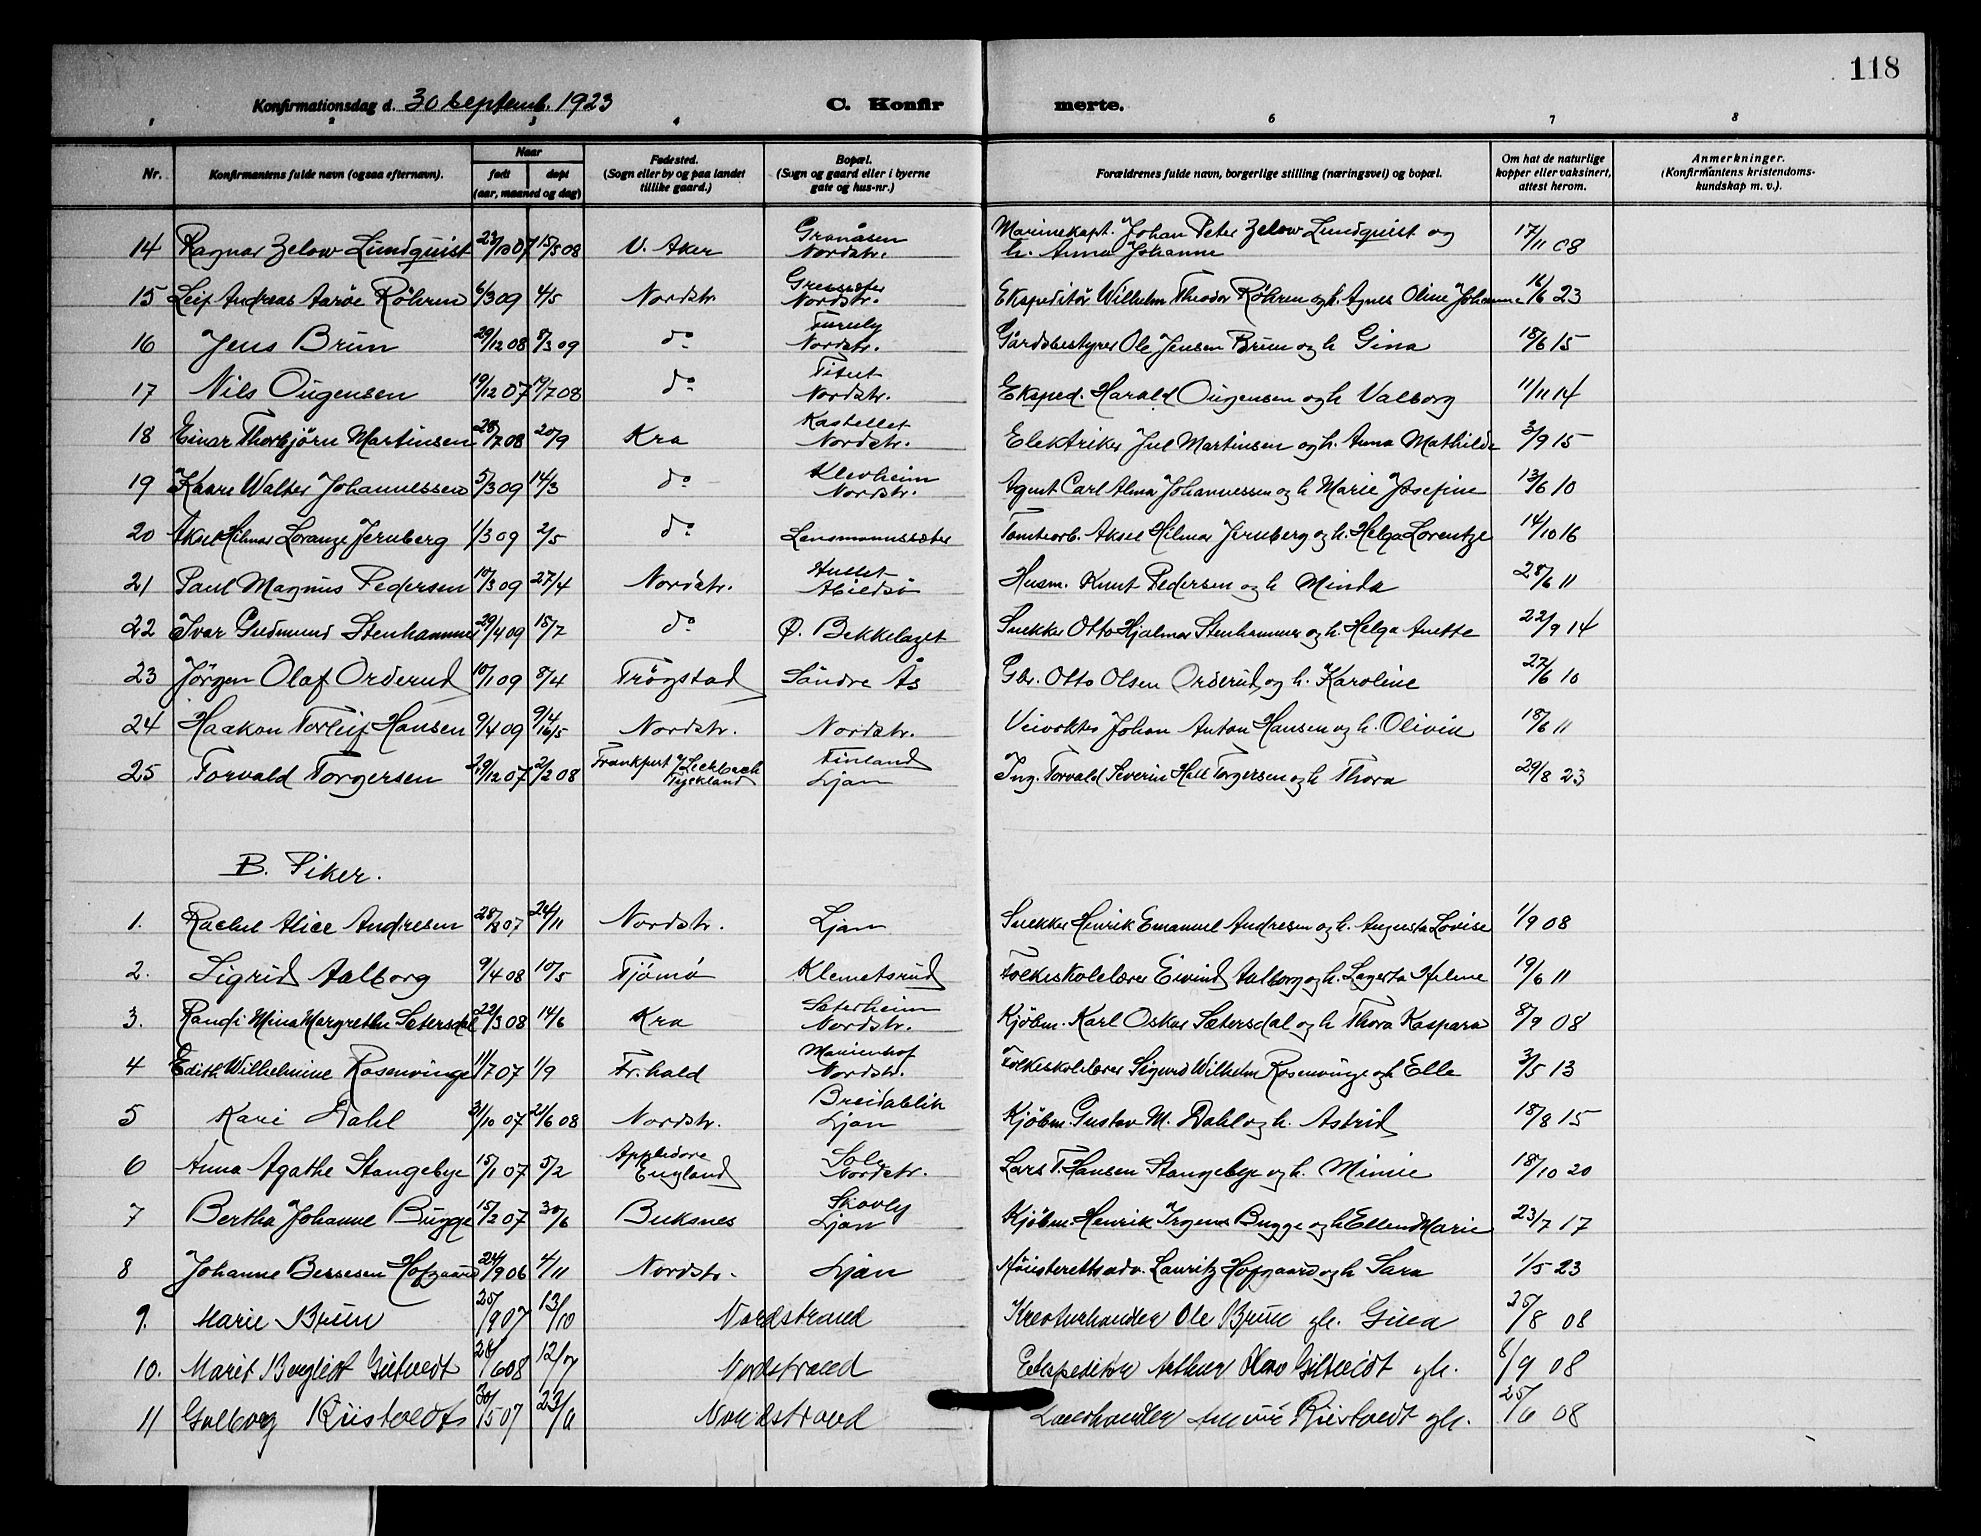 118
Konfirmationsdag d. 30 Septemb. 1923 C. Konfir merte.
1 2 3 4 6 7 8
Nr. Konfirmantens fulde navn (ogsaa efternavn). Naar født døpt (aar, maaned og dag) Fødested. (Sogn eller by og paa landet tillike gaard.) Bopæl. (Sogn og gaard eller i byerne gate og hus-nr.) Forældrenes fulde navn, borgerlige stilling (næringsvei) og bopæl. Om hat de naturlige kopper eller vaksinert, attest herom. Anmerkninger. (Konfirmantens kristendomskundskap m. v.).
14 Ragnar Zelow Lundquist 23/10 07 15/3 08 V. Aker Granåsen Nordstr. Marinekapt. Johan Peter Zelow Lundquist og h. Anna Johanne 17/11 08
15 Leif Andreas Aarøe Röhren 6/3 09 4/5 Nordstr. Nordstr. Ekspeditör Wilhelm Theodor Röhren og h. Agnes Oline Johanne 16/6 23
16 Jens Brun 29/12 08 8/3 09 do Furuly Nordstr. Gårdsbestyrer Ole Jensen Brun og h Gina 18/6 15
17 Nils Ougensen 19/12 07 19/7 08 do Titut Nordstr. Eksped. Harald Ougensen og h Valborg 11/11 14
18 Einar Thorbjörn Martinsen 28/7 08 20/9 Kra Kastellet Nordstr. Elektriker Jul Martinsen og h. Anna Mathilde 3/9 15
19 Kaare Walter Johannessen 5/3 09 14/3 do Klevheim Nordstr. Agent Carl Alma Johannessen og h Marie Josefine 13/6 10
20 Aksel Hilmar Lorange Jernberg 1/3 09 2/5 do Lensmannssæter Tomtearb. Aksel Hilmar Jernberg og h. Helga Lorentze 14/10 16
21 Paul Magnus Pedersen 10/3 09 27/4 Nordstr. Hullet Abildsö Husm. Knut Pedersen og h Minda 28/6 11
22 Ivar Gudmund Stenhammer 29/4 09 15/7 do Ø. Bekkelaget Snekker Otto Hjalmar Stenhammer og h. Helga Anette 22/9 14
23 Jörgen Olaf Orderud 10/1 09 8/4 Trögstad Söndre Ås Gbr. Otto Olsen Orderud og h. Karoline 27/6 10
24 Haakon Norleif Hansen 9/4 09 9/4 16/5 Nordstr. Nordstr. Veivokter Johan Anton Hansen og h. Olivia 18/6 11
25 Torvald Torgersen 29/12 07 2/2 08 Frankfurt Tyskland Finland Ljan Ing. Torvald Severin Hall Torgersen og h Thora 29/8 23
B. Piker.
1. Rachel Alice Andresen 28/8 07 24/11 Nordstr. Ljan Snekker Henrik Emanuel Andresen og h. Augusta Lovise 1/9 08
2. Sigrid Aalborg 9/4 08 10/5 Tjömö Klemetsrud Folkeskolelærer Eivind Aalborg og h. Lagerta Helene 19/6 11
3. Randi Mina Margrethe Sætersdal 22/3 08 14/6 Kra Sæterheim Nordstr. Kjöbm. Karl Oskar Sætersdal og h Thora Kaspara 8/9 08
4 Edith Wilhelmine Rosenvinge 11/7 07 1/9 Fr.hald Marienhof Nordstr. Folkeskolelærer Sigurd Wilhelm Rosenvinge og h Elle 3/5 13
5 Kari Dahl 31/10 07 21/6 08 Nordstr. Breidablik Ljan Kjöbm. Gustav M. Dahl og h. Astrid 18/8 15
6 Anna Agathe Stangebye 15/1 07 5/2 Appledore England Sole Nordstr. Lars T. Hansen Stangebye og h. Minnie 18/10 20
7 Bertha Johanne Bugge 15/2 07 30/6 Buksnes Skovly Ljan Kjöbm. Henrik Irgens Bugge og h Ellen Marie 23/7 17
8 Johanne Bessesen Hofgaard 24/9 06 4/11 Nordstr. Ljan Höiesterettsadv. Lauritz Hofgaard og h Sara 1/5 23
9. Marie Bruun 25/9 07 13/10 Nordstrand Kreaturhandler Ole Bruun gh. Gina 25/8 08
10. Marit 28/6 08 12/7 Nordstrand Ekspeditör Arthur Olav gh. 6/9 08
11 Solborg 30/5 07 23/6 Nordstrand gh. 25/6 08